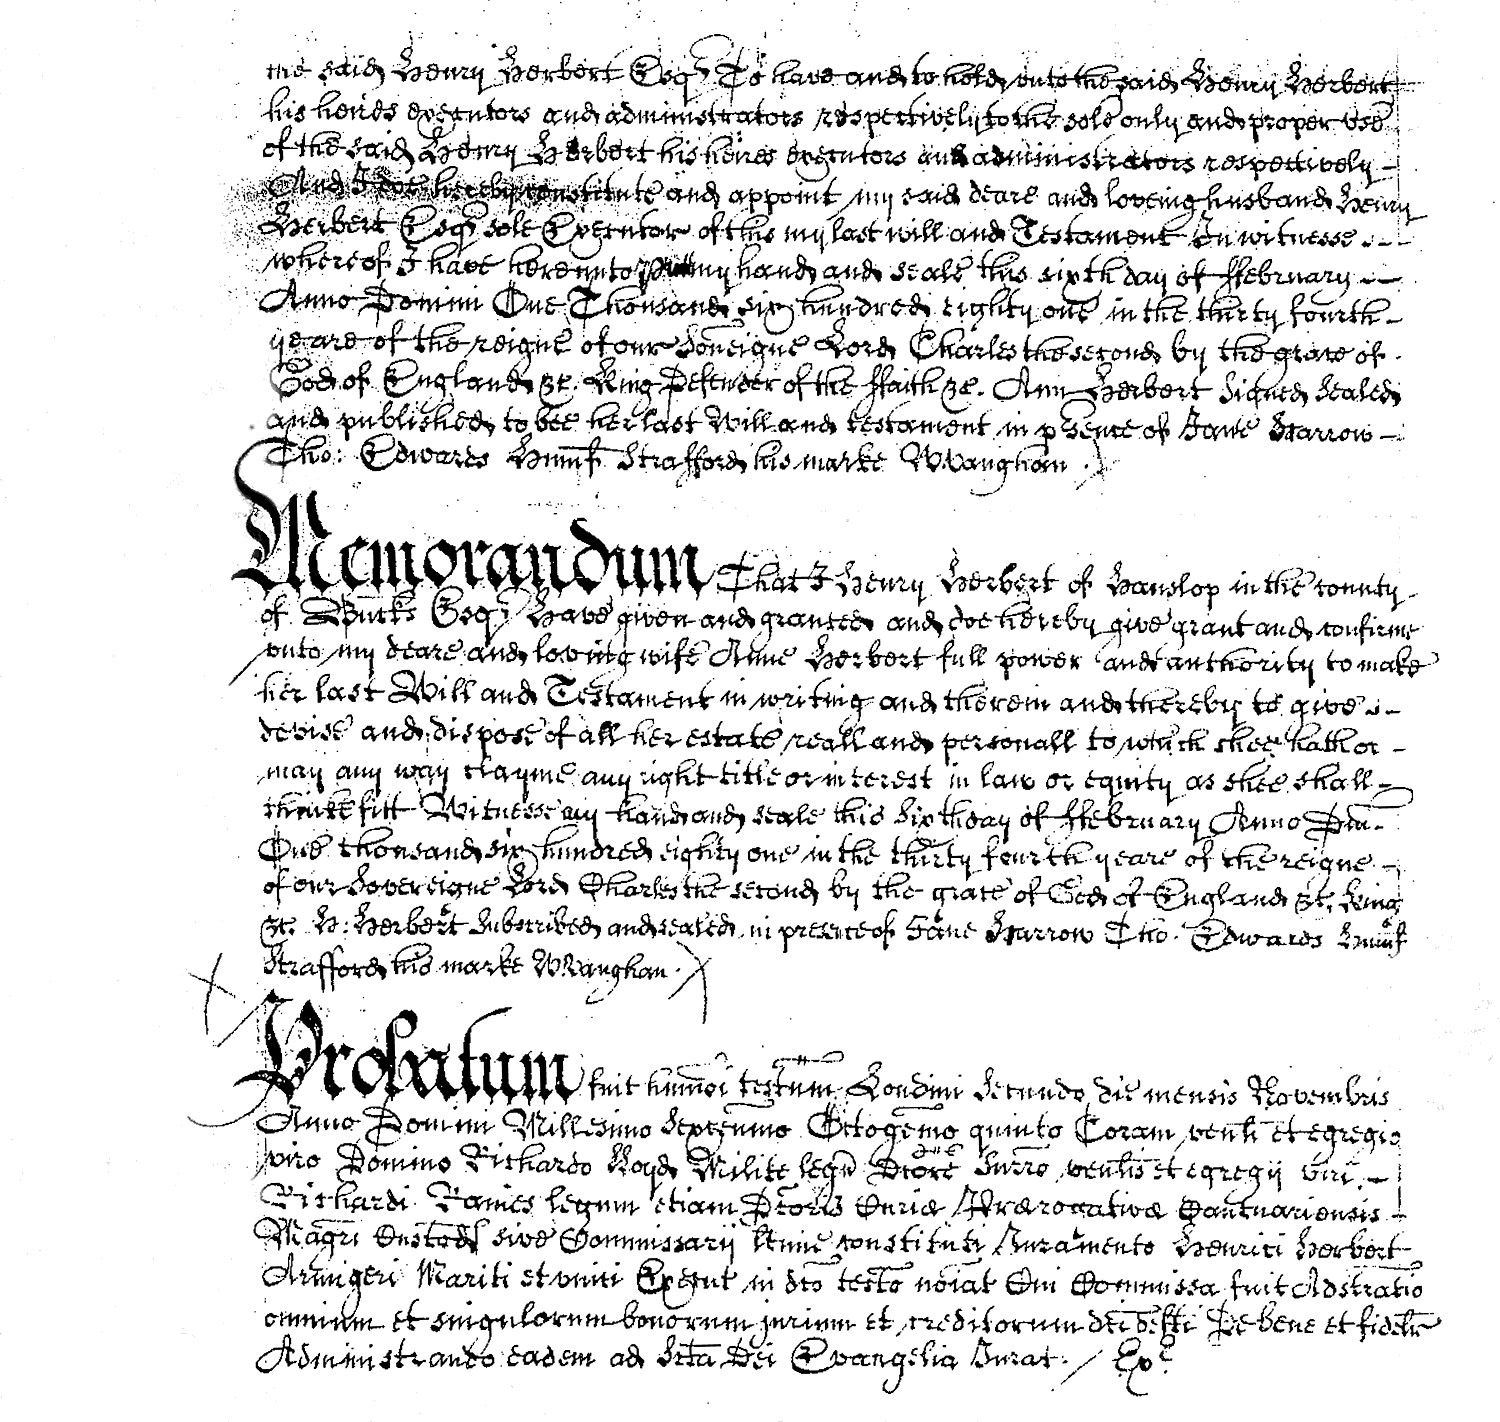 the said Henry Herbert Esqr To have and to hold unto the said Henry Herbert
his heires executors and administrators respectively to the sole only and proper use
of the said Henry Herbert his heires executors and administrators respectively
And I doe hereby constitute and appoint my said deare and loveing husband Henry
Herbert Esqr sole Executor of this my last will and Testament In witnesse
whereof I have hereunto putt my hand and seale this sixth day of ffebruary
Anno Domini One Thousand six hundred eighty one in the thirty fourth
yeare of the reigne of our Soveigne Lord Charles the second by the grace of
God of England &c. King Defender of the ffaith &c. Ann Herbert Signed Sealed
and published to bee her last Will and testament in psence of Jane Harrow
Tho: Edwards Humf Strafford his marke W Vaughan.
Memorandum That I Henry Herbert of Hanslop in the County
of Bucks Esqr Have given and granted and doe hereby give grant and confirme
unto my deare and loving wife Anne Herbert full power and authority to make
her last Will and Testament in writing and therein and thereby to give
devise and dispose of all her estate reall and personall to which shee hath or
may any way clayme any right title or interest in law or equity as shee shall
thinke fitt Witnesse my hand and seale this Sixth day of ffebruary Anno Dm.
One thousand six hundred eighty one in the thirty fourth yeare of the reigne
of our Sovereigne Lord Charles the second by the grace of God of England &c. King
&c. H: Herbert Subscribed and sealed in presence of Jane Harrow Tho. Edwards Humf
Strafford his marke W Vaughan.
Probatum fuit humoi testum Londini Secundo die mensis Novembris
Anno Domini Millesimo Sexcenmo Octogemo quinto Coram venli et egregio
viro Domino Richardo Lloyd Milite legu Dcore Surro venlis et egregij viri
Richardi Raines legum etiam Dcoris Curiæ Prærogativæ Cantuariensis
Magri Custodis sive Commissarij ltime constituti Juramento Henrici Herbert
Armigeri Mariti et unici Execut in dco testo noiat Cui Commissa fuit Adstratio
omnium et singulorum bonorum jurium et creditorum dci defti De bene et fidelr
Administrando eadem ad Scta Dei Evangelia Jurat. / Exr